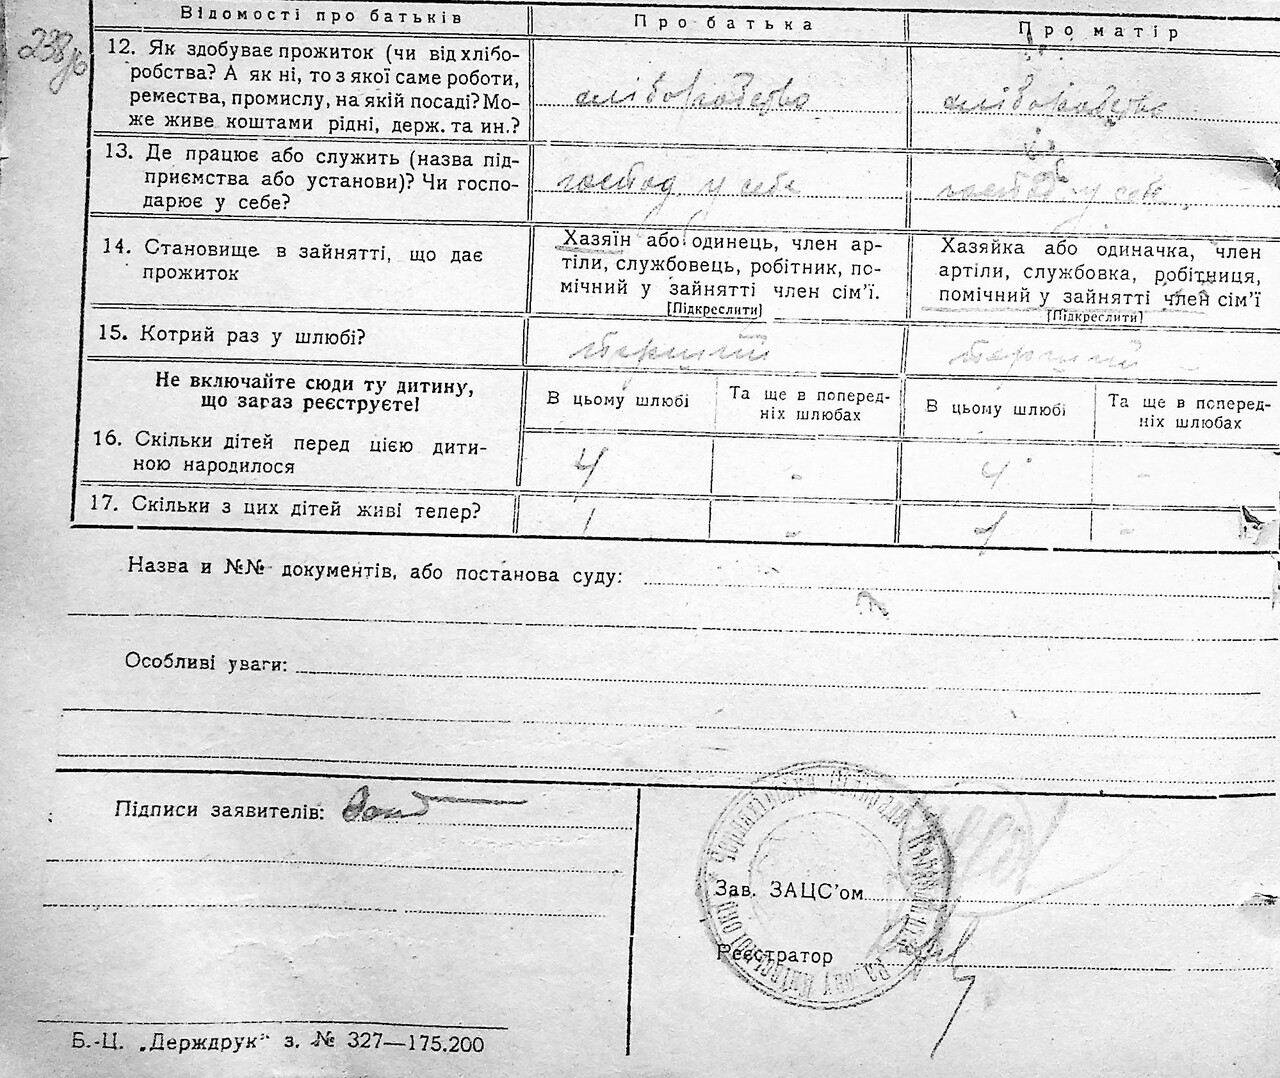 238/б
Відомості про батьків Про батька Про матір
12. Як здобуває прожиток (чи від хлібо-
робства? А як ні, то з якої саме роботи,
ремества, промислу, на якій посаді? Мо-
же живе коштами рідні, держ. та ин.?
хліборобство хліборобство
13. Де працює або служить (назва під-
приємства або установи)? Чи госпо-
дарює у себе?
господ у себе господ у себе
14. Становище в зайнятті, що дає
прожиток
Хазяїн або одинець, член ар-
тіли, службовець, робітник, по-
мічний у зайнятті член сім'ї.
[Підкреслити]
Хазяйка або одиначка, член
артіли, службовка, робітниця,
помічний у зайнятті член сім'ї
[Підкреслити]
15. Котрий раз у шлюбі?
перший перший
Не включайте сюди ту дитину,
що зараз реєструєте!
В цьому шлюбі
Та ще в поперед-
ніх шлюбах
В цьому шлюбі
Та ще в поперед-
ніх шлюбах
16. Скільки дітей перед цією дити-
ною народилося
4 - 4 -
17. Скільки з цих дітей живі тепер?
1 - 1 -
Назва и №№ документів, або постанова суду:
Особливі уваги:
Підписи заявителів:
Зав. ЗАЦС'ом
Реєстратор
Б.-Ц. „Держдрук" з. № 327—175.200